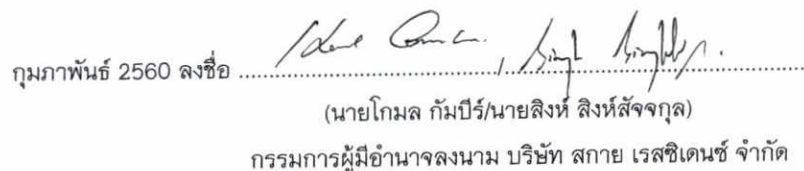 กุมภาพันธ์ 2560 ลงชื่อ ....................................................................................
(นายโกมล กัมบีร์/นายสิงห์ สิงห์สัจจกุล)
กรรมการผู้มีอำนาจลงนาม บริษัท สกาย เรสซิเดนซ์ จำกัด